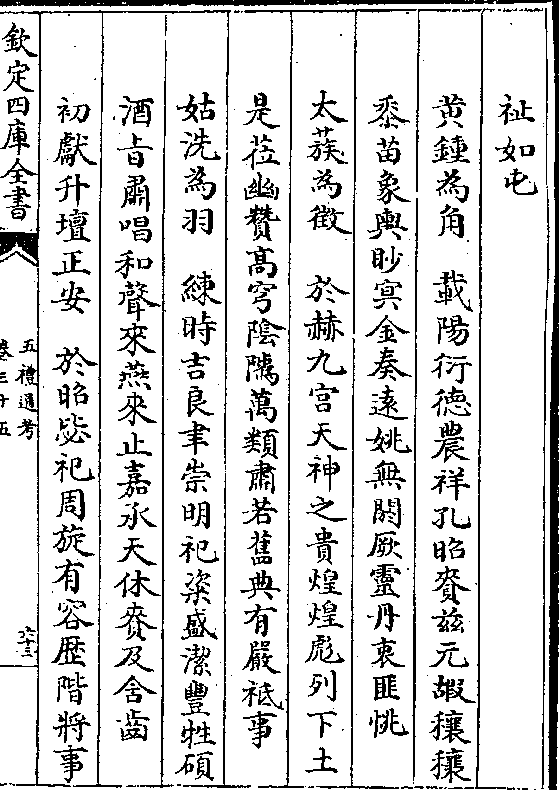 祉如屯
黄鍾為角　載陽衍德農祥孔昭賚兹元嘏穰穰
黍苗象輿眇冥金奏遠姚無閼厥靈丹衷匪恌
太蔟為徵　於赫九宫天神之貴煌煌彪列下土
是莅幽贊髙穹隂隲萬類肅若舊典有嚴祗事
姑洗為羽　練時吉良聿崇明祀粢盛潔豐牲碩
酒㫖肅唱和聲來燕來止嘉承天休賚及含齒
初獻升壇正安　於昭毖祀周旋有容歴階將事
欽定四庫全書
五禮通考
卷三十五